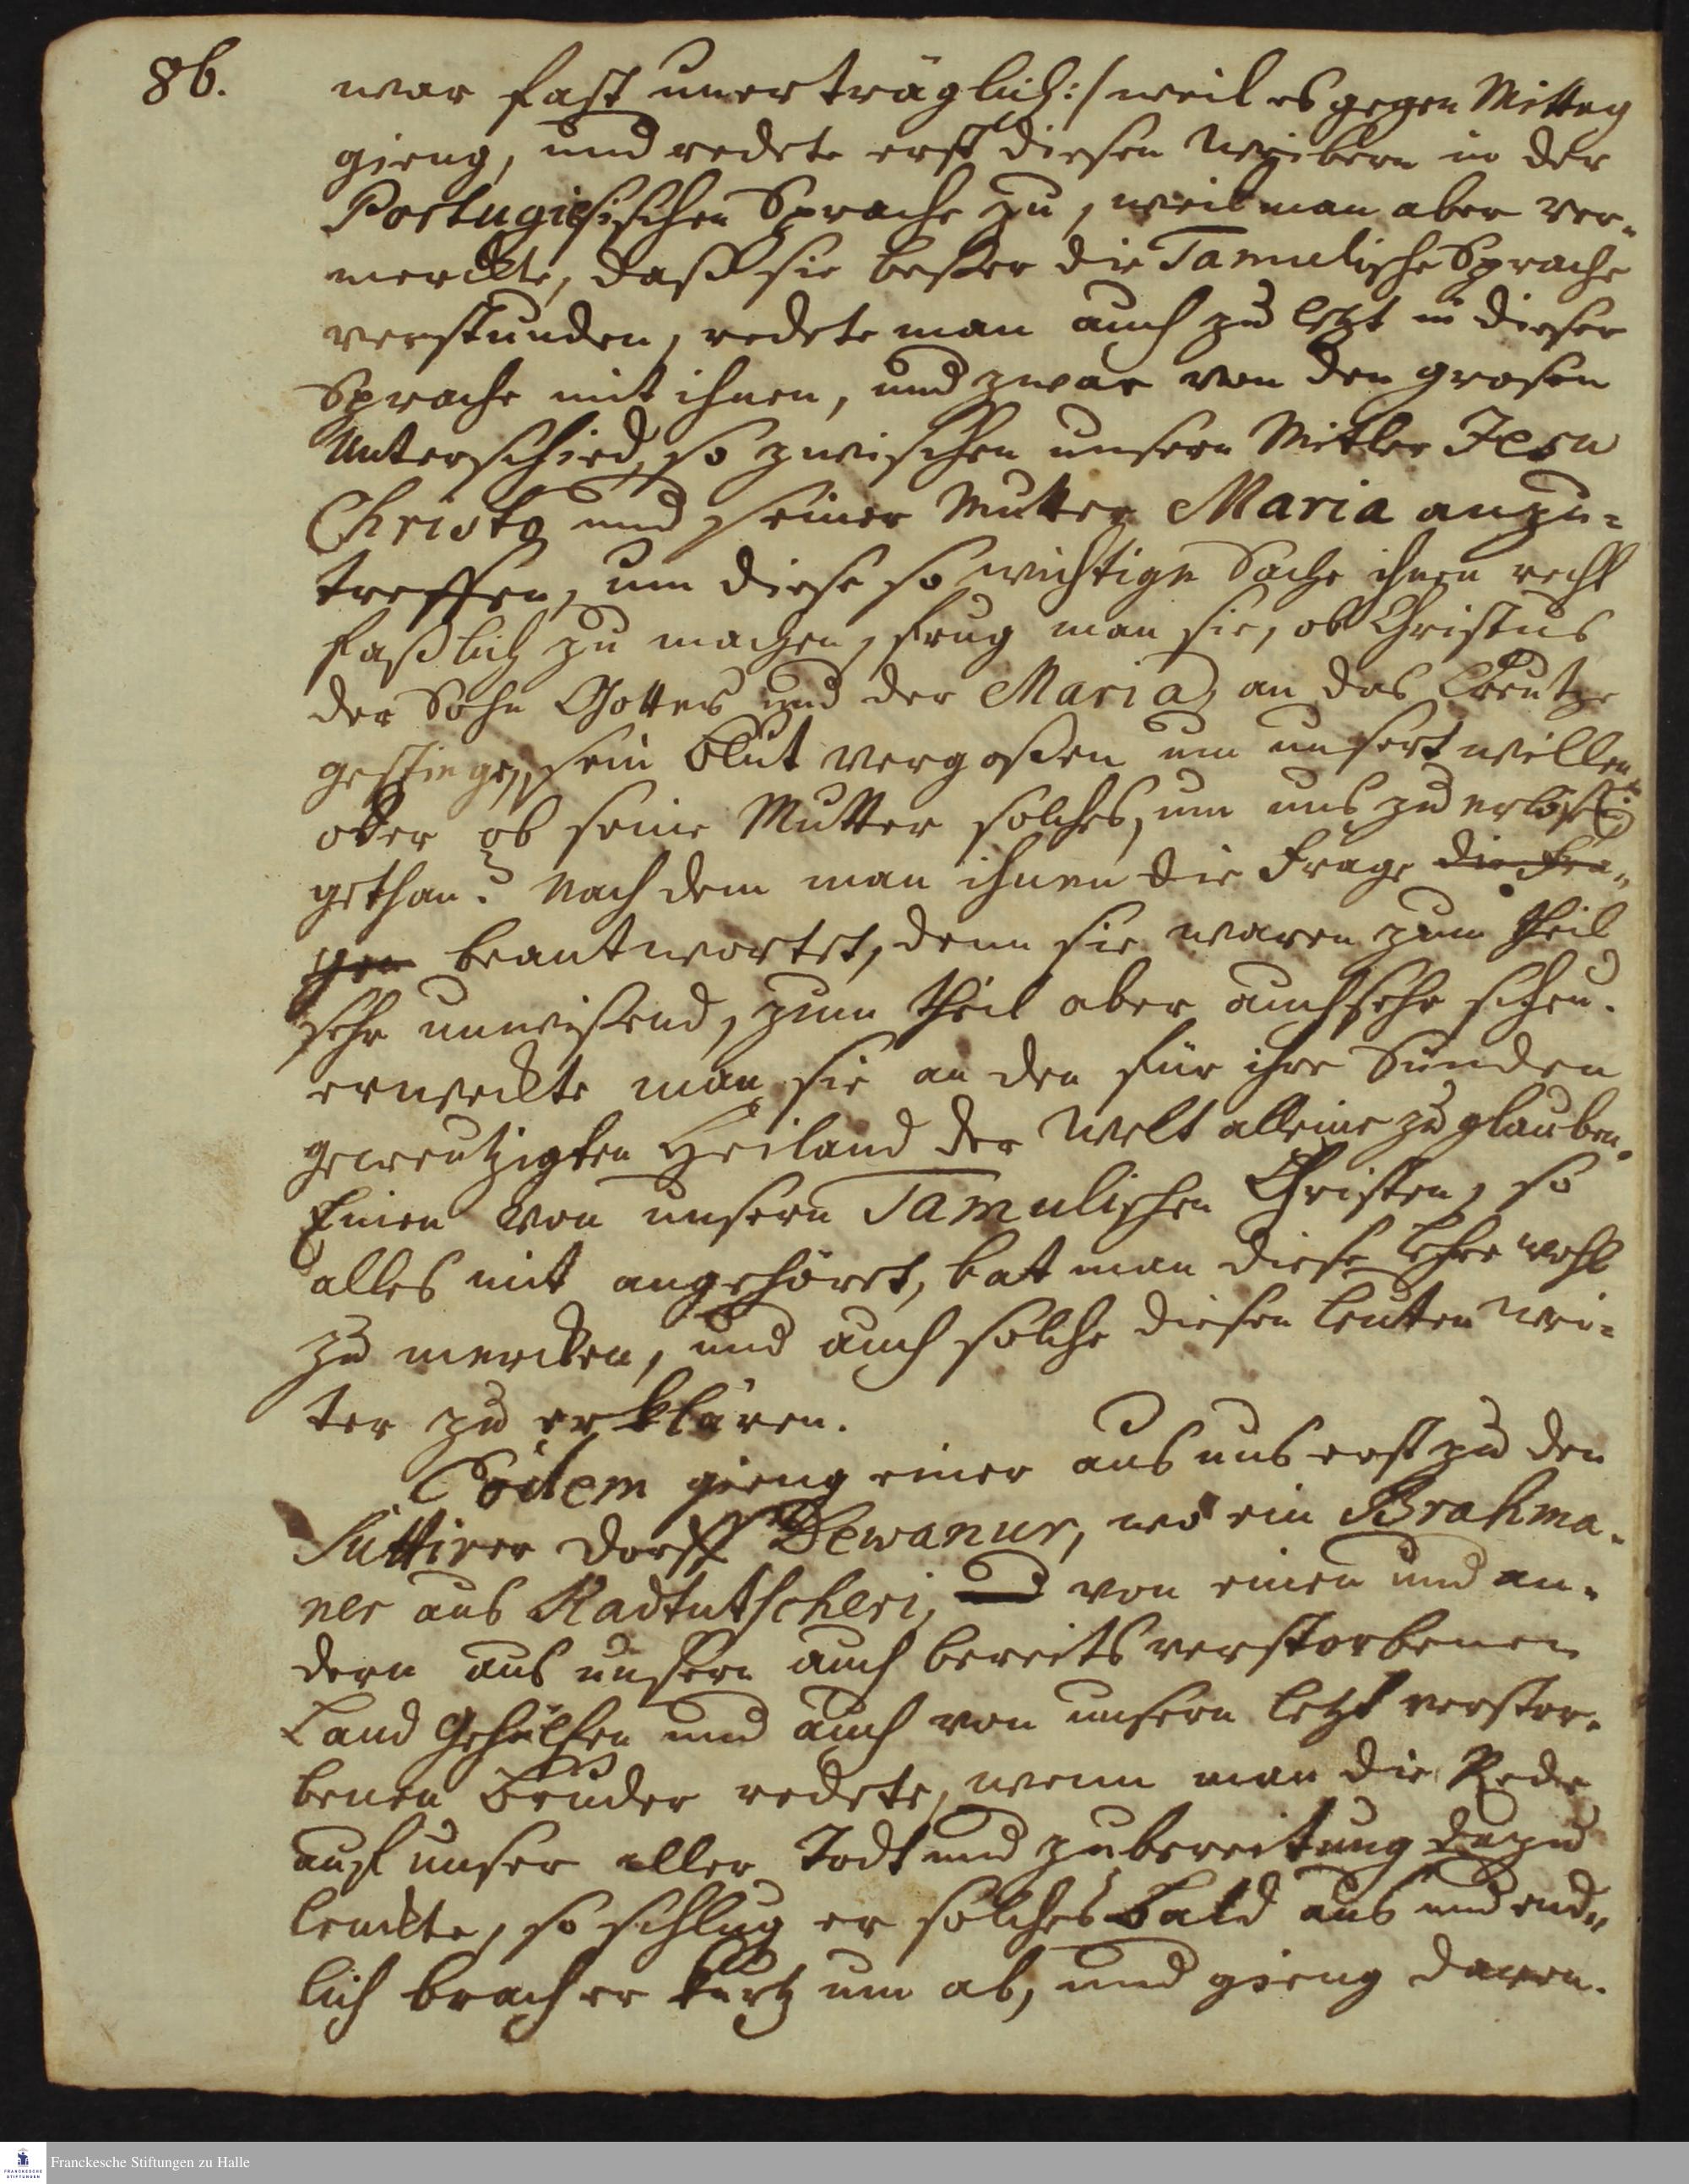 86.
war fast unerträglich :/ weil es gegen Mittag
gieng, und redete erst diesen Weibern in der
Portugiesischen Sprache zu, weil man aber ver-
merckte, daß sie beßer die Tamulische Sprache
verstunden, redete man auch zu letzt in dieser
Sprache mit ihnen, und zwar von den grosen
Unterschied, so zwischen unsern Mitler Jesu
Christo und seiner Mutter Maria anzu-
treffen, um diese so wichtige Sache ihnen recht
faßlich zu machen, frug man sie, ob Christus
der Sohn Gottes und der Maria, an das Creutze
gestiegen, sein Blut vergoßen um unsert willen,
oder ob seine Mutter solches, um uns zu erlösen
gethan? Nach dem man ihnen die Frage die Fra-
gen beantwortet, denn sie waren zum theil
sehr unwißend, zum theil aber auch sehr scheu.
erweckte man sie an den für ihre Sünden
gecreutzigten Heiland der Welt alleine zu glauben.
Einen von unsern Tamulischen Christen, so
alles mit angehöret, bat man diese Lehre wohl
zu mercken, und auch solche diesen Leuten wei-
ter zu erklären.
Eodem gieng einer aus uns erst zu den
Süttirer Dorff Dewanur, wo ein Brahma-
ner aus Kadtutscheri, und von einen und an-
dern aus unsern auch bereits verstorbenen
Land Gehülfen und auch von unsern letzt verstor-
benen Bruder redete, wenn man die Rede
auf unser aller Todt und zubereitung dazu
lenckte, so schlug er solches bald aus und end-
lich brach er kurtz um ab, und gieng davon.
Franckesche Stiftungen zu Halle
FRANCKESCHE STIFTUNGEN